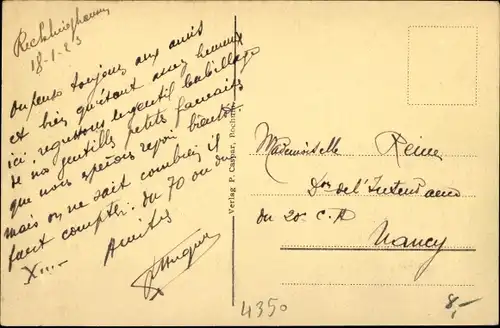 Recklinghausen
18-1-23
On pense toujours aux amis
et bien qu'étant assez heureux
ici, regrettons le gentil babillage
de nos gentilles petites françaises
que nous espérons revoir bientôt.
mais on ne sait combien il
faut compter. du 70 ou du
X...
Amitiés
Verlag P. Caspar, Bochum
Mademoiselle Reine
de l'Intendance
du 20e C.A
Nancy
4350
8,-